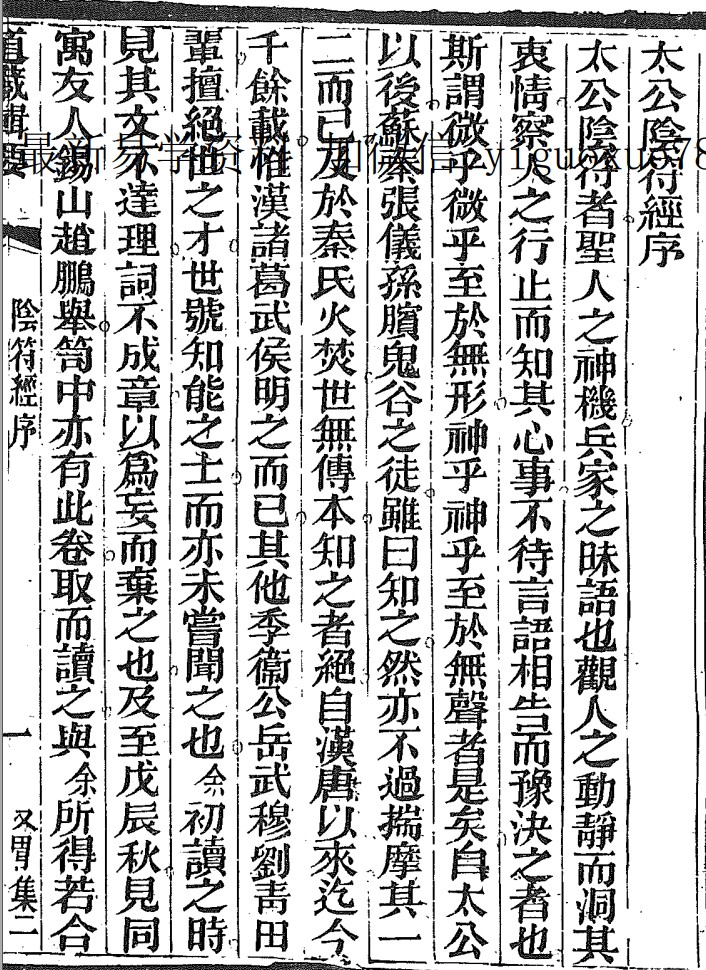 太公陰符經序
太公陰符者聖人之神機兵家之昧語也觀人之動靜而洞其
衷情察人之行止而知其心事不待言語相告而豫決之者也
斯謂微乎微乎至於無形神乎神乎至於無聲者是矣自太公
以後蘇秦張儀孫臏鬼谷之徒雖曰知之然亦不過揣摩其一
二而已及於秦氏火焚世無傳本知之者絕自漢唐以來迄今
千餘載惟漢諸葛武侯明之而已其他季衞公岳武穆劉青田
輩擅絕世之才世號知能之士而亦未嘗聞之也余初讀之時
見其文不達理詞不成章以為妄而棄之也及至戊辰秋見同
寓友人錫山趙鵬舉笥中亦有此卷取而讀之與余所得若合
道藏輯要
陰符經序
一
又胃集二
最新易学资 加微信 yiguoxue78